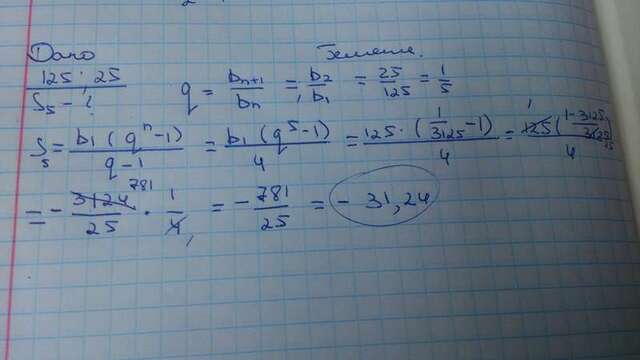 Дано Решение.
125; 25 q = bn+1/bn = b2/b1 = 25/125 = 1/5
S5 - ?
S5 = b1(qⁿ-1)/q-1 = b1(q⁵-1)/4 = 125·(1/3125 -1)/4 = 125(1-3125/3125)/4
= - 3124/25 · 1/4 = - 781/25 = - 31,24